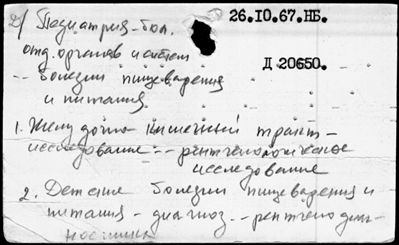 2) Педиатрия - бол.
26.10.67.НБ.
отд. органов и систем
Д 20650.
-- болезни пищеварения
и питания.
1. Желудочно-кишечный тракт -
исследование -- рентгенологическое
исследование
2. Детские болезни пищеварения и
питания - диагноз. -- рентгенодиаг-
ностика